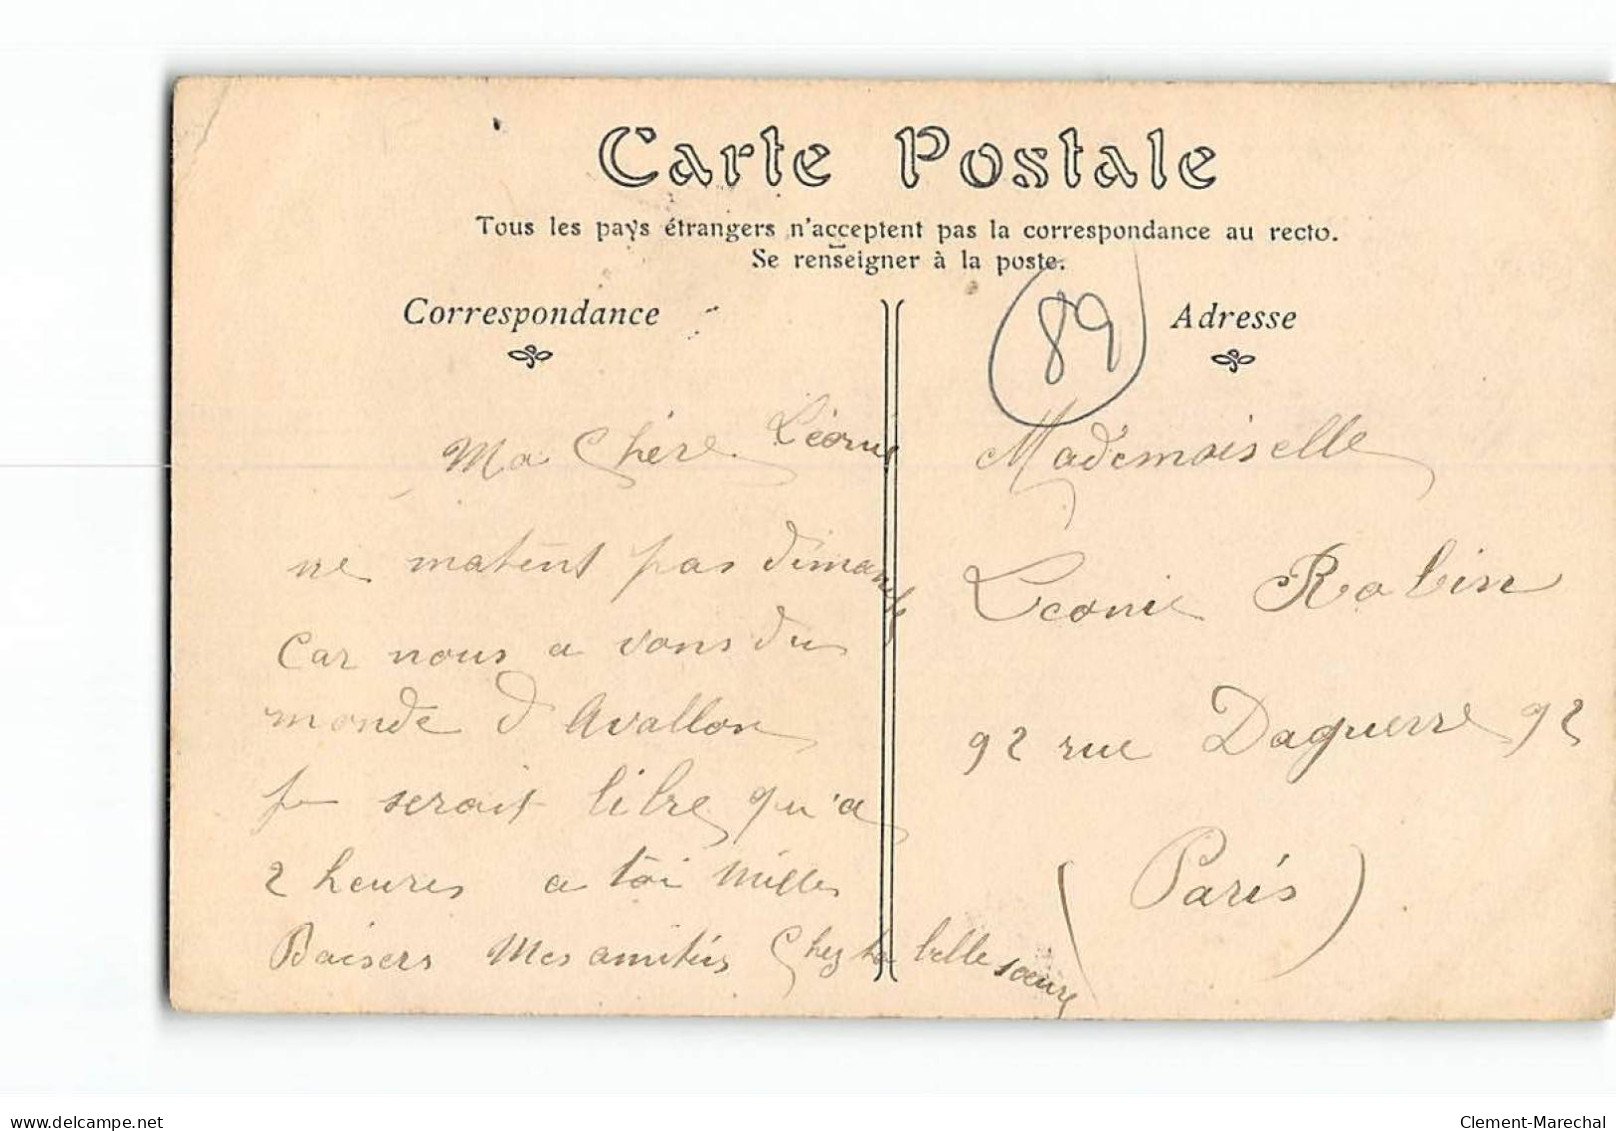 Carte Postale
Tous les pays étrangers n'acceptent pas la correspondance au recto.
Se renseigner à la poste.
Correspondance
Adresse
89
Ma Chère Léonie
ne matent pas dimanche
Car nous a vons du
monde d'Avallon
je serait libre qu'a
2 heures a toi Milles
Baisers Mes amitiés Chez ta belle soeure
Mademoiselle
Leonie Robin
92 rue Daguerre 92
(Paris)
delcampe.net
Clement-Marechal